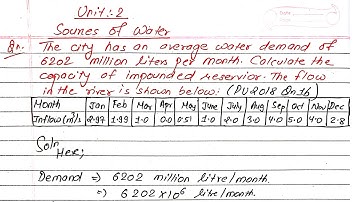 Unit:2
Sources of Water
Qn. The city has an average water demand of
6202 million liters per month. Calculate the
capacity of impounded reservior. The flow
in the river is shown below: (PU2018 Qn.1b)
Month Jan Feb Mar Apr May June July Aug Sep Oct Nov Dec
Inflow(m³/s 2.97 1.99 1.0 0.0 0.51 1.0 2.0 3.0 4.0 5.0 4.0 2.8
Soln
Here,
Demand => 6202 million litre/month.
=> 6202 x10⁶ litre/month.